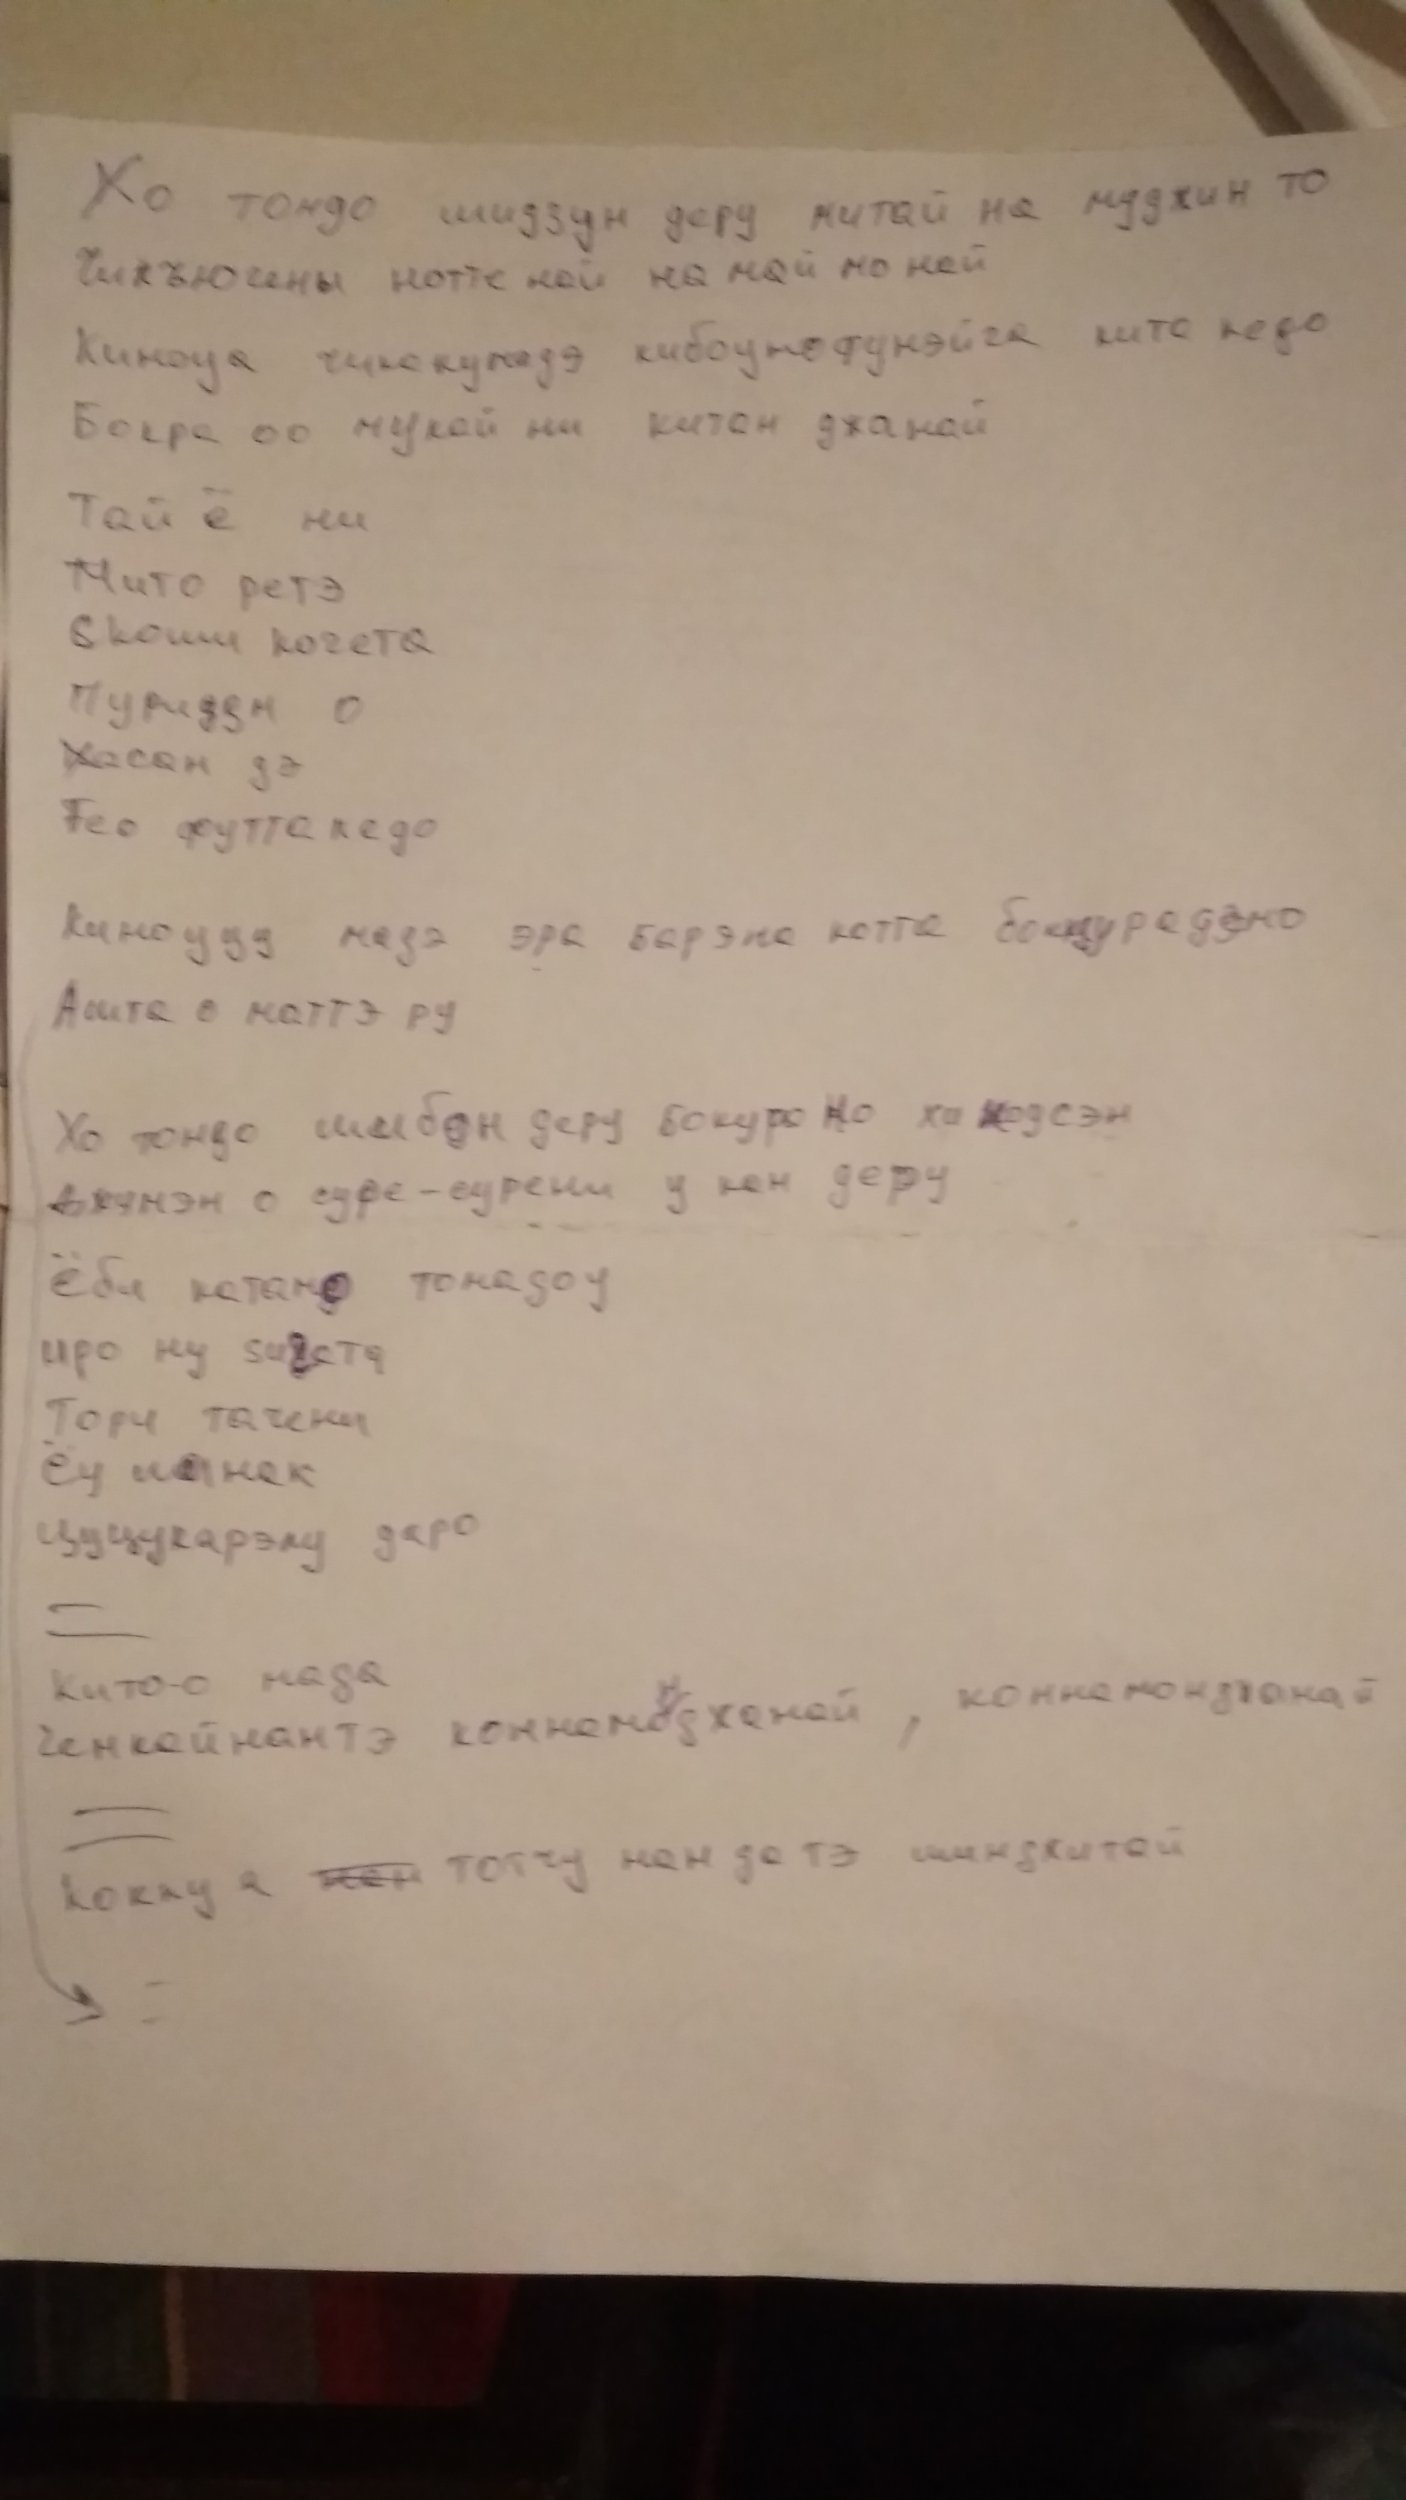 Хо тондо шидзун деру митай на мудхин то
Чикъюсены нотте най на май мо най
Киноуа чикакумадэ кибоунофунэйга кита кедо
Бокра оо мукай ни китан дханай
Тай ё ни
Мито ретэ
Skоши когета
Пуриззм о
Хасан дэ
Тео футта кедо
Киноууу мадэ эра барэна котта бокцурадэмо
Ашта о маттэ ру
Хо тондо шибон деру бокура но хи кодсэн
дхунэн о суре-сурени у кан деру
Ёби катано тонадоу
иро ну suгата
Тори тачени
Ёу и нак
цуцукарэну даро
Кито-о мада
Ченкайнантэ коннамондханай, коннамондханай
Кокку а тотчу нан да тэ шиндхитай